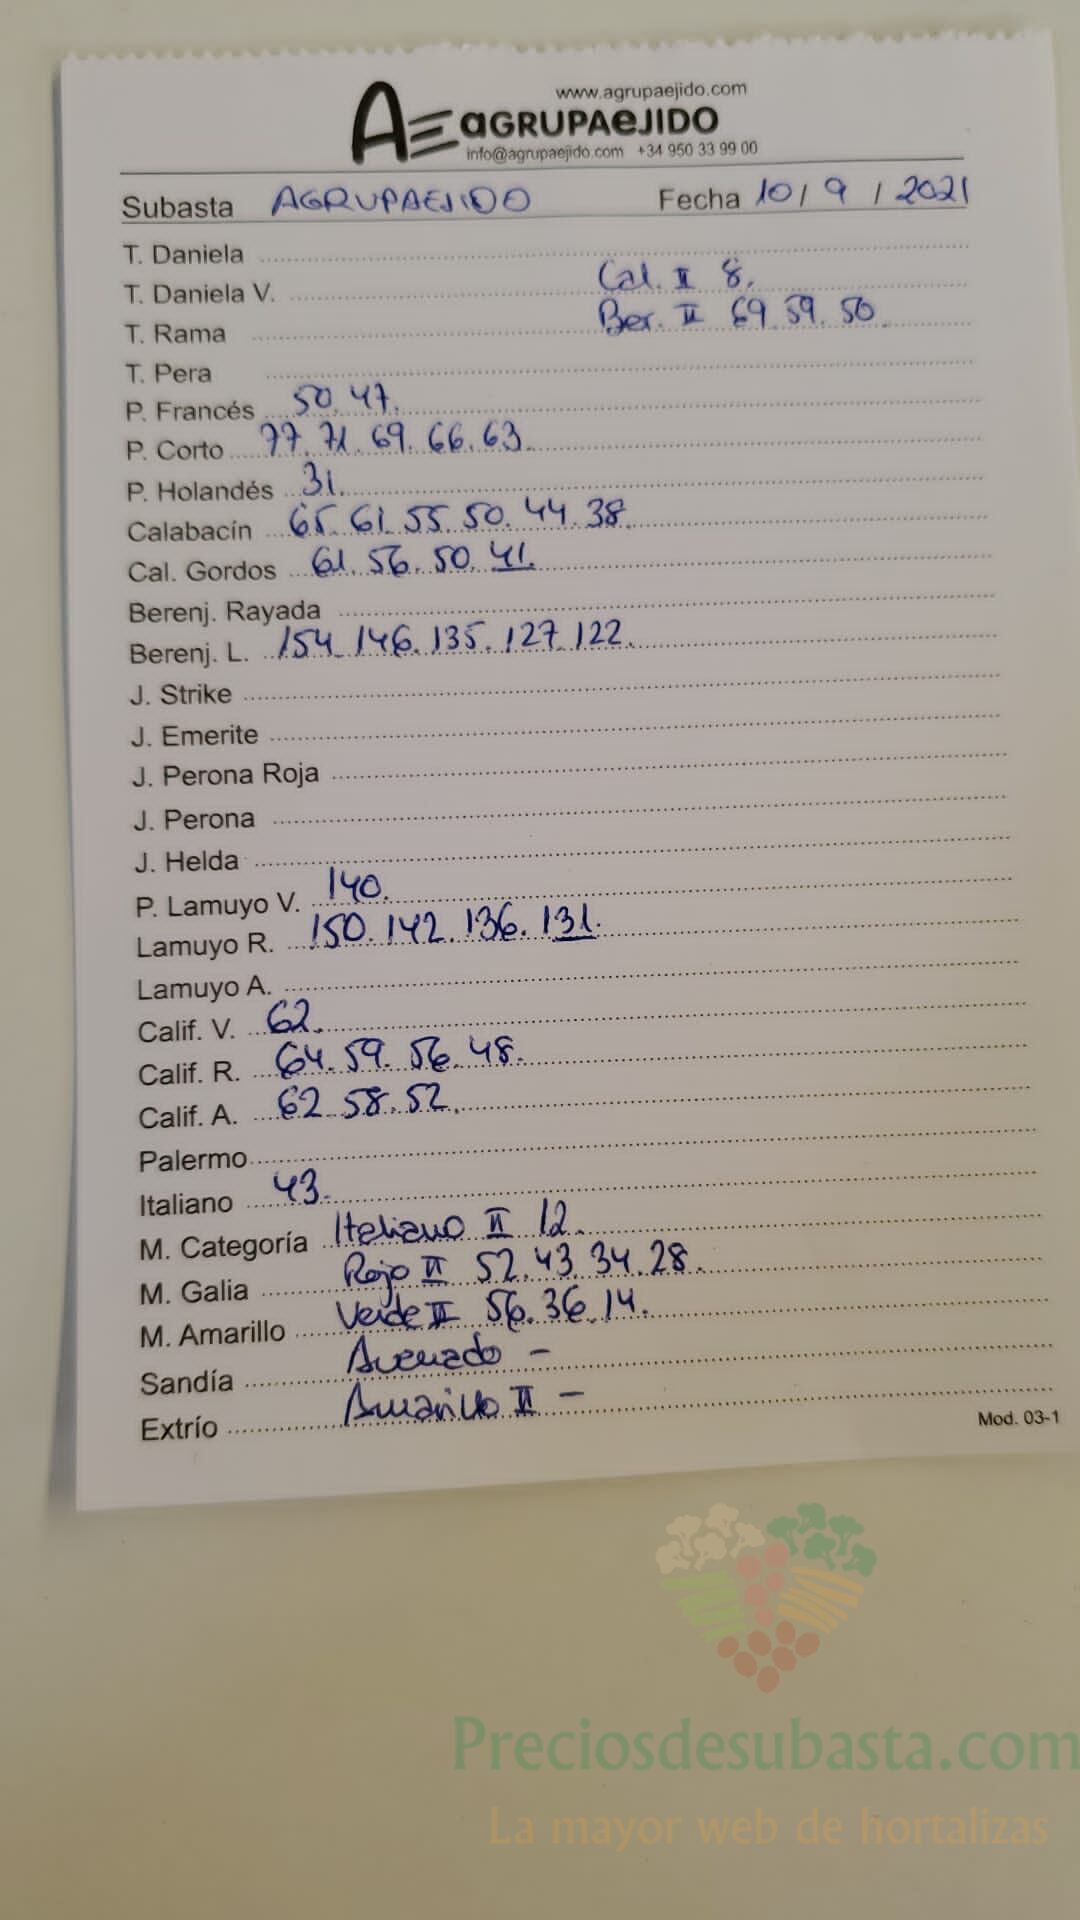 www.agrupaejido.com
AE aGRUPAeJIDO
info@agrupaejido.com +34 950 33 99 00
Subasta AGRUPAEJIDO Fecha 10/9/2021
T. Daniela
Cal. II 8.
T. Daniela V.
Ber. II 69. 59. 50
T. Rama
T. Pera
P. Francés 50. 47.
P. Corto 77. 71. 69. 66. 63.
P. Holandés 31.
Calabacín 65. 61. 55. 50. 44. 38.
Cal. Gordos 61. 56. 50. 41.
Berenj. Rayada
Berenj. L. 154. 146. 135. 127. 122.
J. Strike
J. Emerite
J. Perona Roja
J. Perona
J. Helda
P. Lamuyo V. 140.
Lamuyo R. 150. 142. 136. 131.
Lamuyo A.
Calif. V. 62.
Calif. R. 64. 59. 56. 48.
Calif. A. 62 58. 52.
Palermo
Italiano 43.
M. Categoría Italiano II 12.
M. Galia Rojo II 52. 43. 34. 28.
M. Amarillo Verde II 56. 36. 14.
Sandía Asurcado -
Extrío Amarillo II -
Mod. 03-1
Preciosdesubasta.com
La mayor web de hortalizas